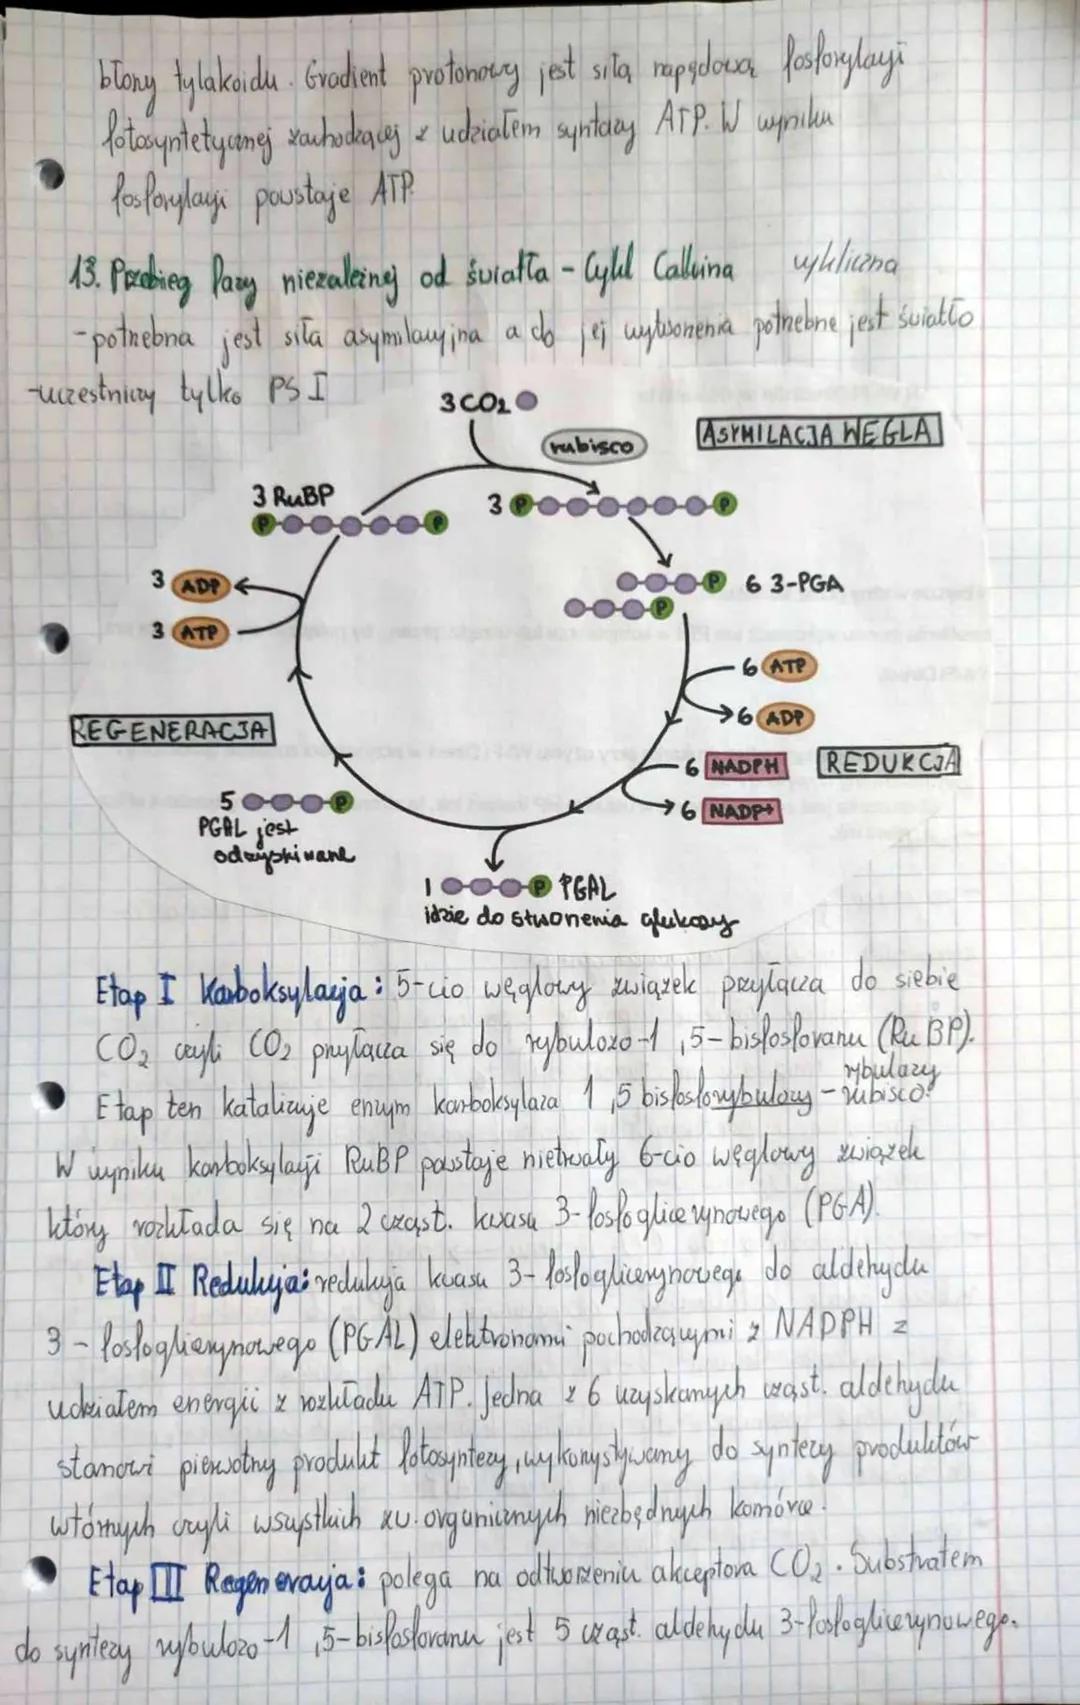 błony tylakoidu. Gradient protonowy jest siłą napędową fosforylacji
fotosyntetycznej zachodzącej z udziałem syntazy ATP. W wyniku
fosforylacji powstaje ATP.
13. Przebieg fazy niezależnej od światła - Cykl Calvina cykliczna
- potrzebna jest siła asymilacyjna a do jej wytworzenia potrzebne jest światło
- uczestniczy tylko PS I
3 CO2
rubisco
ASYMILACJA WĘGLA
3 RuBP
P P
3 P P
3 ADP
P 6 3-PGA
P
3 ATP
6 ATP
6 ADP
REGENERACJA
6 NADPH
REDUKCJA
6 NADP+
5 P
PGAL jest
odzyskiwane
1 P PGAL
idzie do stworzenia glukozy
Etap I Karboksylacja: 5-cio węglowy związek przyłącza do siebie
CO2 czyli CO2 przyłącza się do rybulozo-1,5-bisfosforanu (RuBP).
rybulazy
Etap ten katalizuje enzym karboksylaza 1,5 bisfosforybulozy - rubisco.
W wyniku karboksylacji RuBP powstaje nietrwały 6-cio węglowy związek
który rozkłada się na 2 cząst. kwasu 3-fosfoglicerynowego (PGA).
Etap II Redukcja: redukcja kwasu 3-fosfoglicerynowego do aldehydu
3-fosfoglicerynowego (PGAL) elektronami pochodzącymi z NADPH z
udziałem energii z rozkładu ATP. Jedna z 6 uzyskanych cząst. aldehydu
stanowi pierwotny produkt fotosyntezy, wykorzystywany do syntezy produktów
wtórnych czyli wszystkich zw. organicznych niezbędnych komórce.
Etap III Regeneracja: polega na odtworzeniu akceptora CO2. Substratem
do syntezy rybulozo-1,5-bisfosforanu jest 5 cząst. aldehydu 3-fosfoglicerynowego.